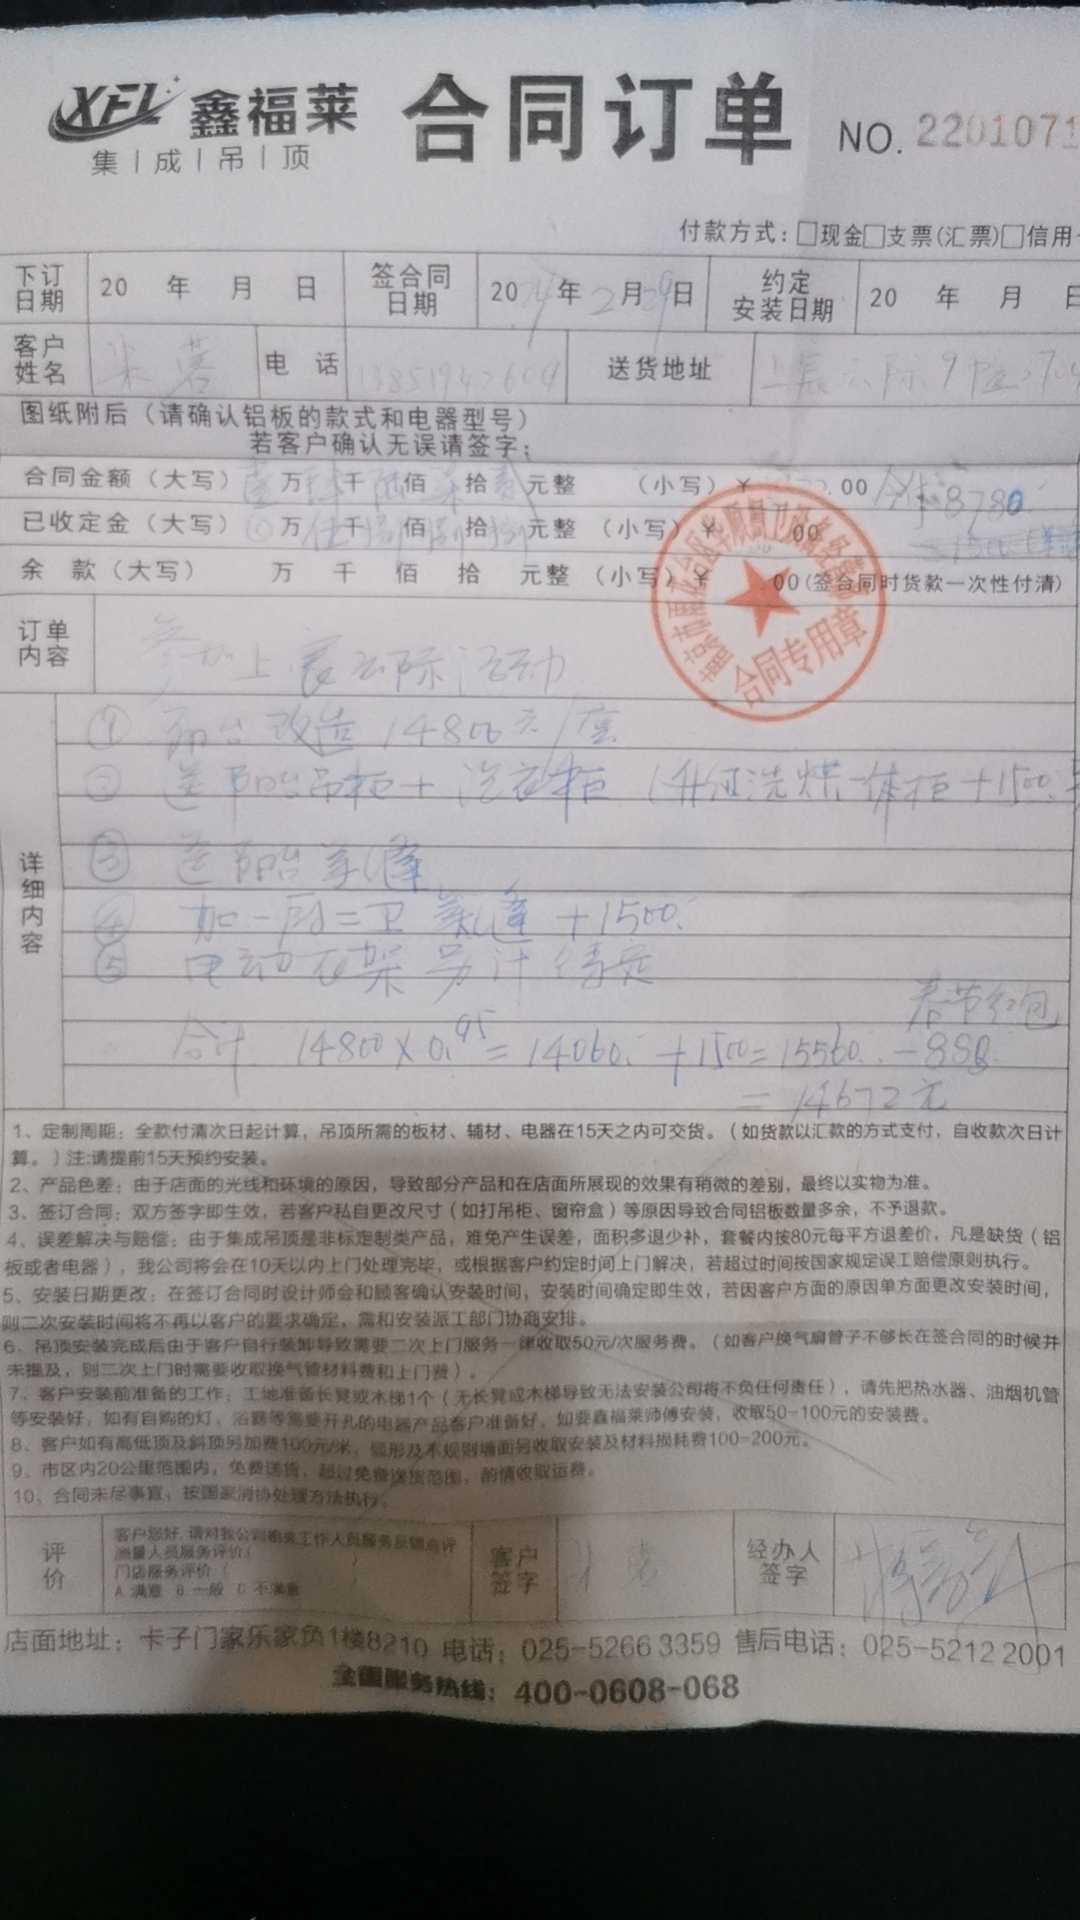 XFL 鑫福莱 合同订单 NO. 2201071
集|成|吊|顶
付款方式:□现金□支票(汇票)□信用
下订日期 20 年 月 日 签合同日期 2024年2月29日 约定安装日期 20 年 月 日
客户姓名 电话 送货地址
图纸附后(请确认铝板的款式和电器型号)
若客户确认无误请签字:
合同金额(大写) 壹万肆千陆佰柒拾贰元整 (小写)¥ .00 8780
已收定金(大写) 万 千 佰 拾 元整 (小写)¥ 00
余 款(大写) 万 千 佰 拾 元整 (小写)¥ 00(签合同时货款一次性付清)
订单内容 参加上 云际活动
详细内容
① 阳台改造 14800元/套
② 送阳台吊柜+洗衣柜 (升级洗烘一体柜+1500
③ 送阳台美缝
④ 加一厨二卫美缝+1500.
⑤ 电动衣架另计
春节红包
合计 14800×0.95=14060.+1500=15560.-888
=14672元
1、定制周期:全款付清次日起计算,吊顶所需的板材、辅材、电器在15天之内可交货。(如货款以汇款的方式支付,自收款次日计
算。)注:请提前15天预约安装。
2、产品色差:由于店面的光线和环境的原因,导致部分产品和在店面所展现的效果有稍微的差别,最终以实物为准。
3、签订合同:双方签字即生效,若客户私自更改尺寸(如打吊柜、窗帘盒)等原因导致合同铝板数量多余,不予退款。
4、误差解决与赔偿:由于集成吊顶是非标定制类产品,难免产生误差,面积多退少补,套餐内按80元每平方退差价,凡是缺货(铝
板或者电器),我公司将会在10天以内上门处理完毕,或根据客户约定时间上门解决,若超过时间按国家规定误工赔偿原则执行。
5、安装日期更改:在签订合同时设计师会和顾客确认安装时间,安装时间确定即生效,若因客户方面的原因单方面更改安装时间,
则二次安装时间将不再以客户的要求确定,需和安装派工部门协商安排。
6、吊顶安装完成后由于客户自行装卸导致需要二次上门服务一律收取50元/次服务费。(如客户换气扇管子不够长在签合同的时候并
未提及,则二次上门时需要收取换气管材料费和上门费)。
7、客户安装前准备的工作:工地准备长凳或木梯1个(无长凳或木梯导致无法安装公司将不负任何责任),请先把热水器、油烟机管
等安装好,如有自购的灯,浴霸等需要开孔的电器产品客户准备好,如要鑫福莱师傅安装,收取50-100元的安装费。
8、客户如有高低顶及斜顶另加费100元/米,弧形及不规则墙面另收取安装及材料损耗费100-200元。
9、市区内20公里范围内,免费送货,超过免费送货范围,酌情收取运费。
10、合同未尽事宜,按国家消协处理方法执行。
评价 客户您好,请对我公司 工作人员服务 评
测量人员服务评价( )
门店服务评价( )
A 满意 B 一般 C 不满意
客户签字 经办人签字
店面地址:卡子门家乐家负1楼8210 电话:025-5266 3359 售后电话:025-5212 2001
全国服务热线:400-0608-068
合同专用章